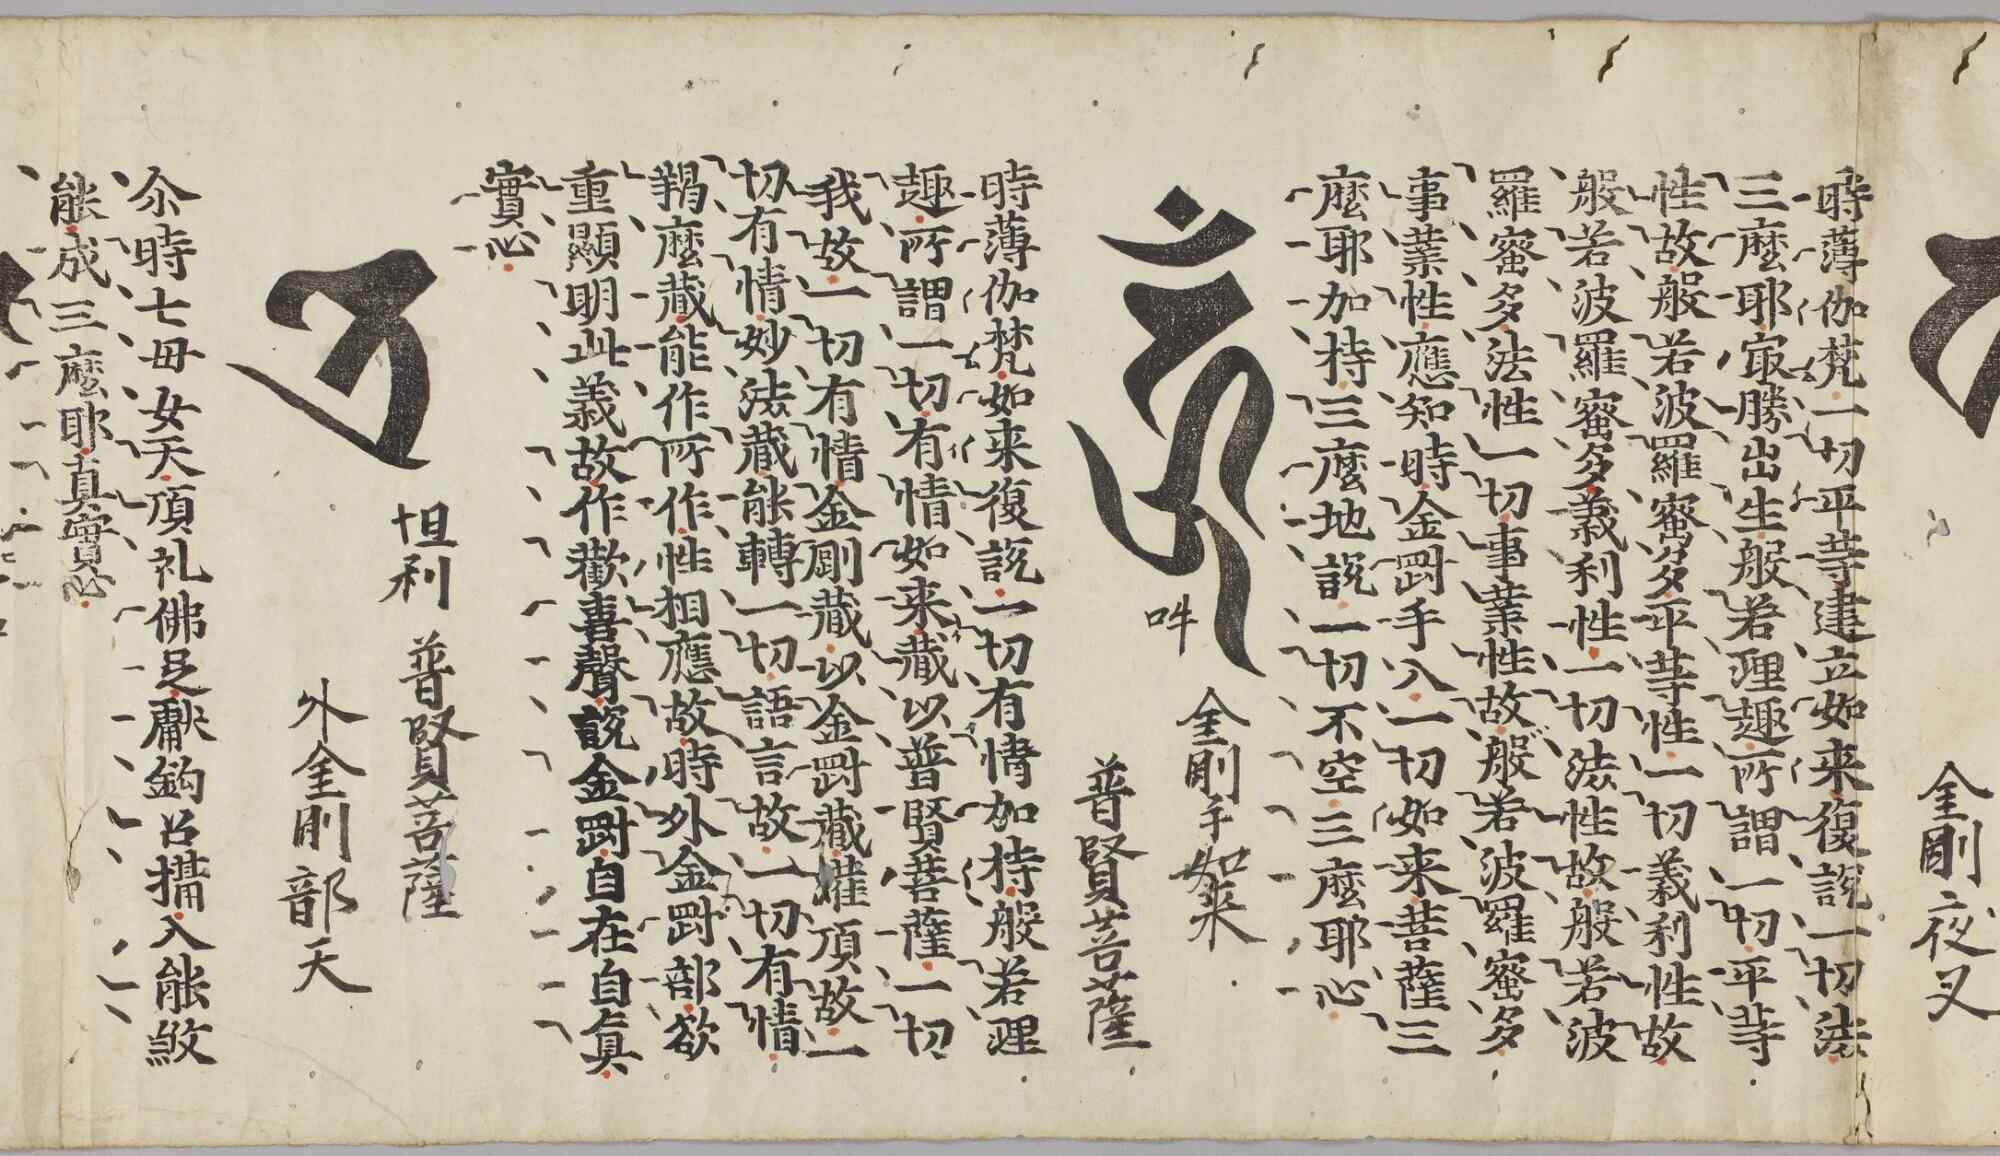 金剛夜叉
時薄伽梵一切平等建立如来復説一切法
三麼耶冣勝出生般若理趣所謂一切平等
性故般若波羅蜜多平等性一切義利性故
般若波羅蜜多義利性一切法性故般若波
羅蜜多法性一切事業性故般若波羅蜜多
事業性應知時金剛手入一切如来菩薩三
麼耶加持三麼地説一切不空三麼耶心
𑖮𑖳𑖽
吽
金剛手如来
普賢菩薩
時薄伽梵如来復説一切有情加持般若理
趣所謂一切有情如来蔵以普賢菩薩一切
我故一切有情金剛蔵以金剛蔵灌頂故一
切有情妙法蔵能轉一切語言故一切有情
羯麼蔵能作所作性相應故時外金剛部欲
重顯明此義故作歡喜聲説金剛自在自真
實心
怛利
普賢菩薩
外金剛部天
尒時七母女天頂礼佛足獻鈎召攝入能煞
能成三麼耶真實心